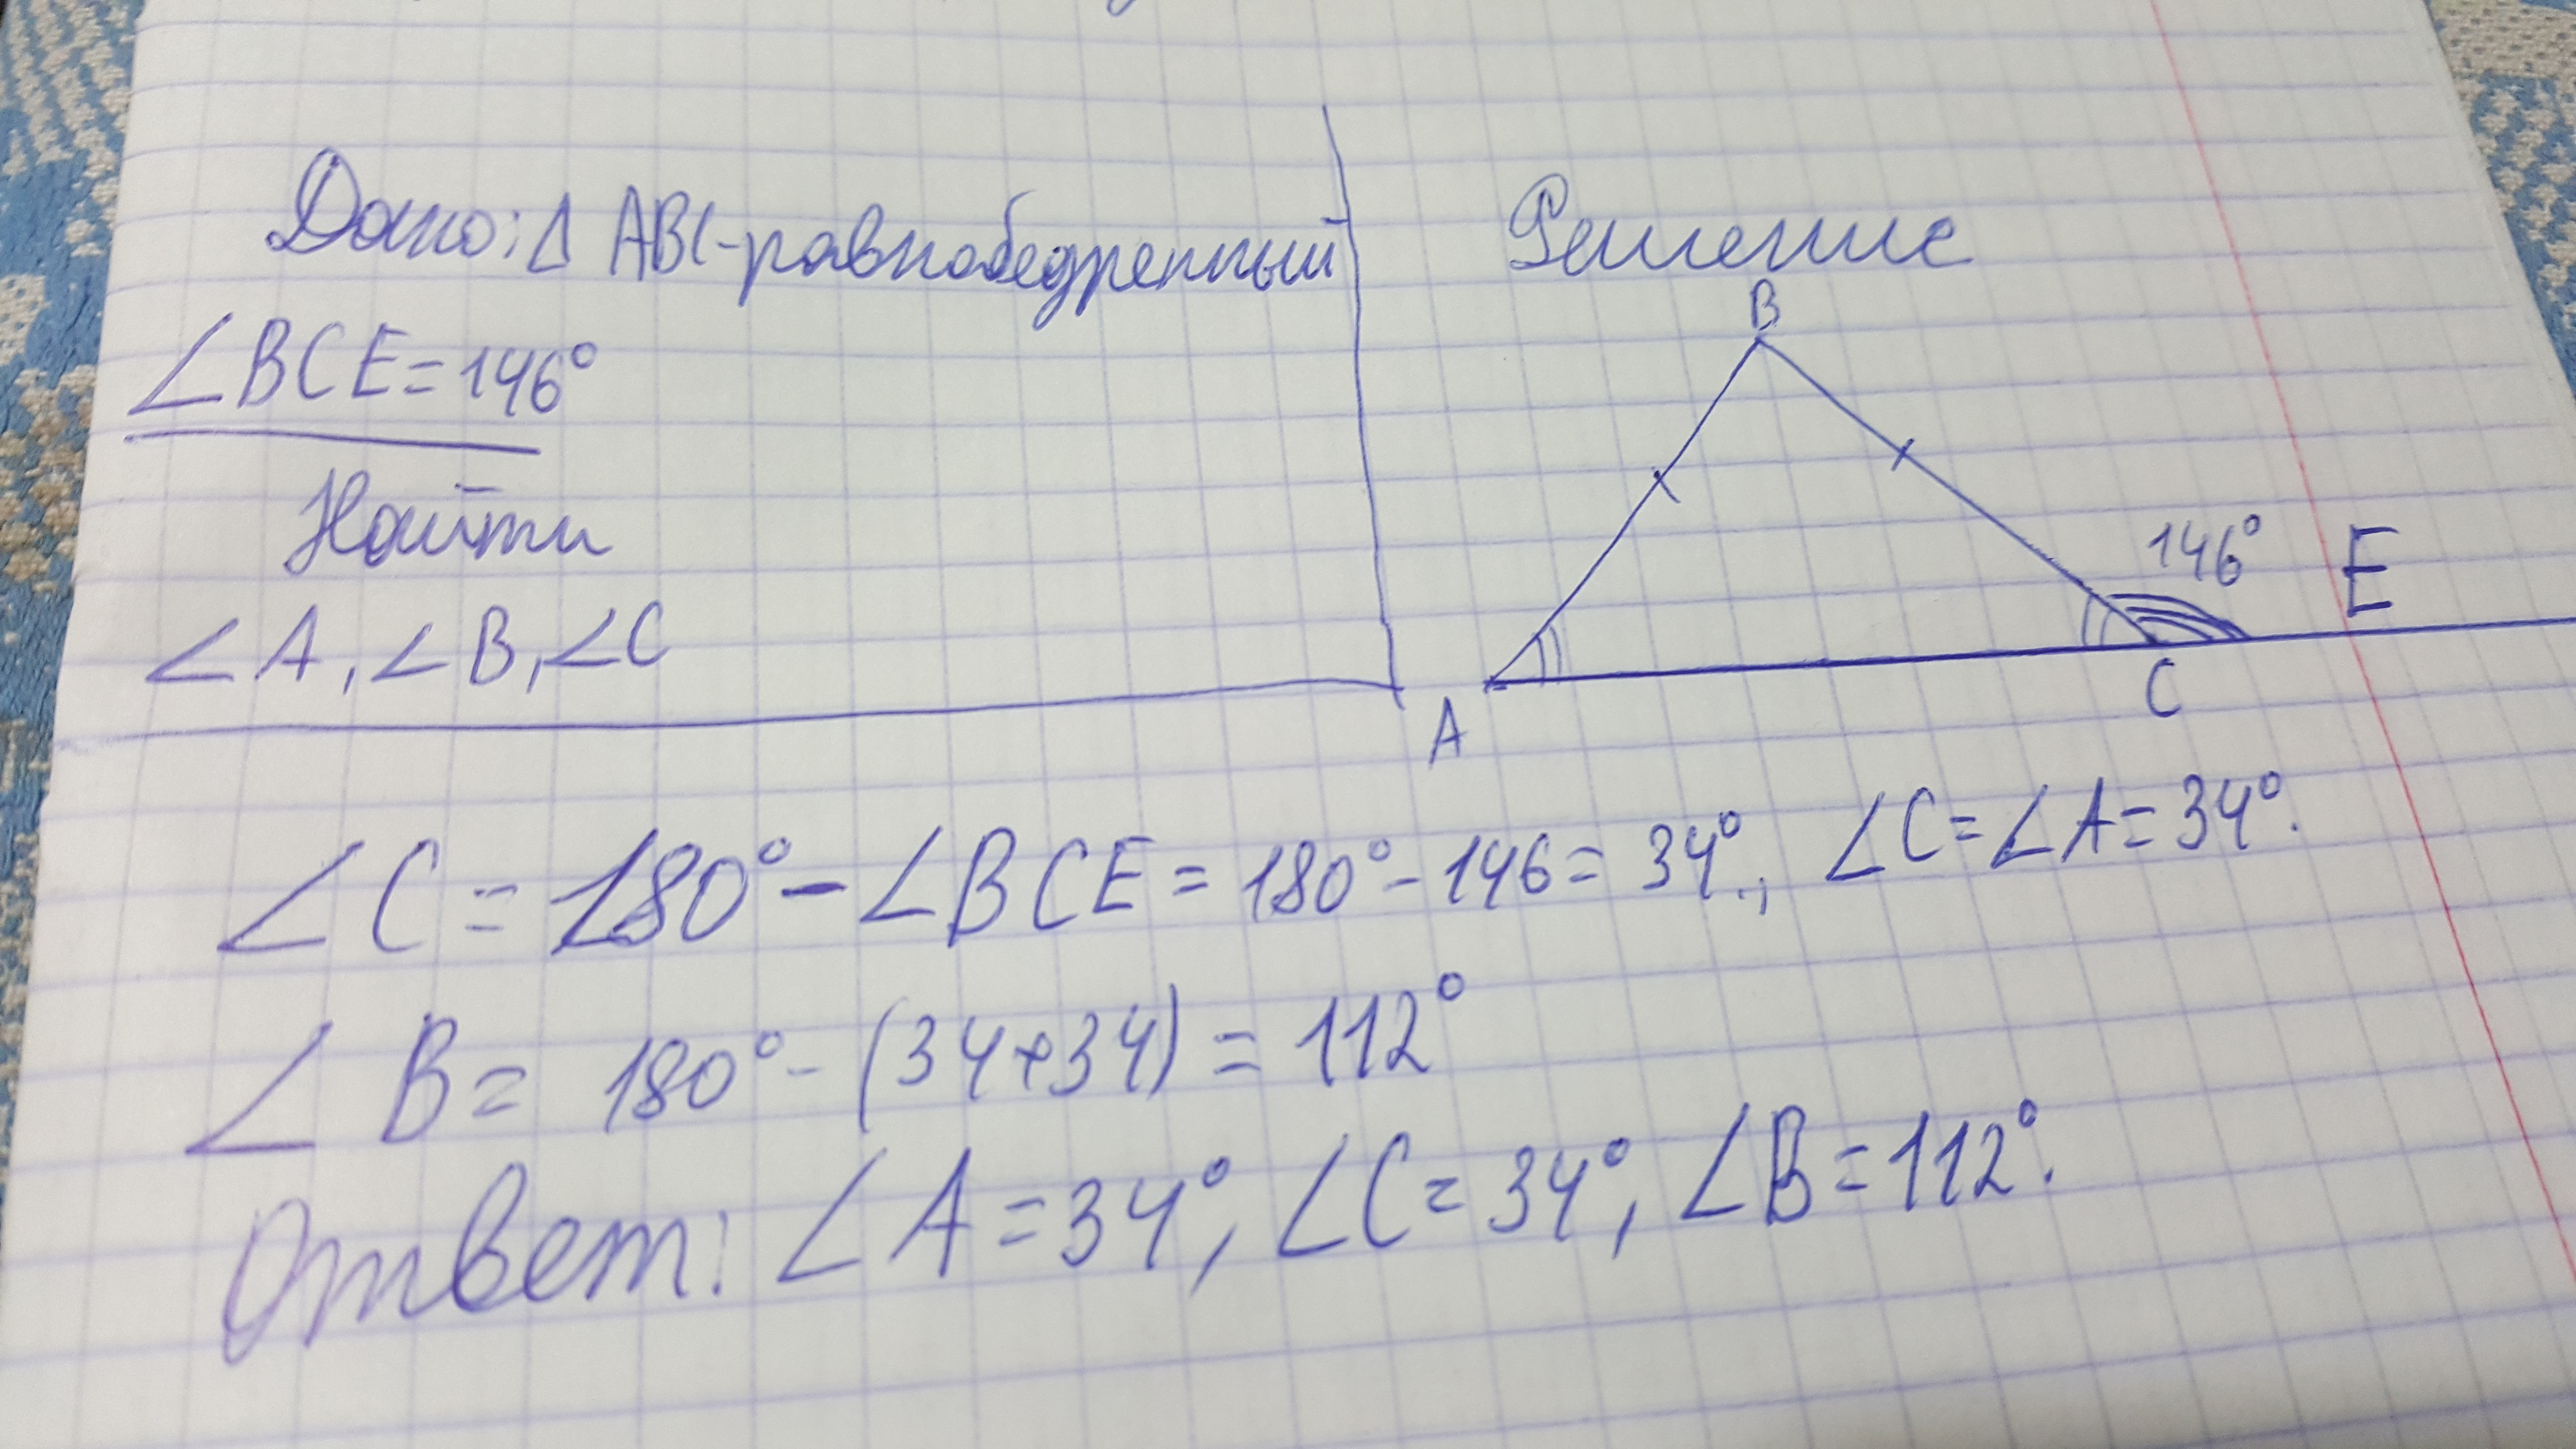 Дано: Δ ABC-равнобедренный
∠BCE=146°
Найти
∠A, ∠B, ∠C
Решение
B
146°
E
A
C
∠C = 180° - ∠BCE = 180° - 146 = 34°., ∠C = ∠A = 34°.
∠B = 180° - (34+34) = 112°
Ответ: ∠A = 34°, ∠C = 34°, ∠B = 112°.